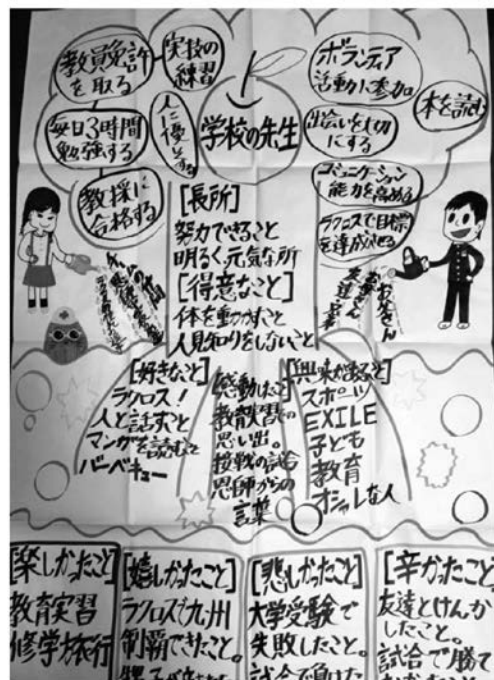 教員免許
を取る
実技の
練習
ボランティア
活動に参加
本を読む
毎日3時間
勉強する
人に優しくする
学校の先生
出会いを大切
にする
教採に
合格する
コミュニケーション
能力を高める
ラクロスで目標
を達成させる
[長所]
努力できること
明るく、元気な所
[得意なこと]
体を動かすこと
人見知りをしないこと
お父さん
お母さん
友達
[好きなこと]
ラクロス!
人と話すこと
マンガを読むこと
バーベキュー
感動したこと
教育実習での
思い出。
接戦の試合
恩師からの
言葉
[興味があること]
スポーツ
EXILE
子ども
教育
オシャレな人
[楽しかったこと]
教育実習
修学旅行
[嬉しかったこと]
ラクロスで九州
制覇できたこと。
[悲しかったこと]
大学受験で
失敗したこと。
試合で負けた
[辛かったこと]
友達とけんか
したこと。
試合で勝て